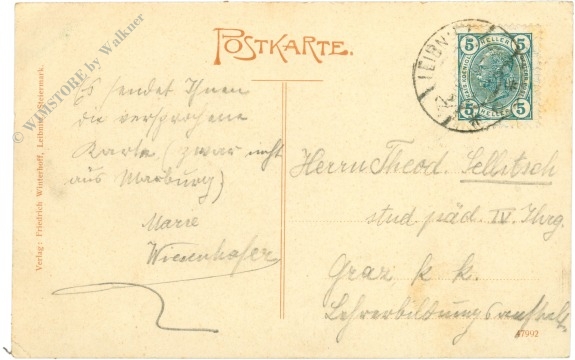 POSTKARTE.
© WIMSTORE by Walkner
Verlag: Friedrich Winterhoff, Leibnitz, Steiermark.
Es sendet Ihnen
die versprochene
Karte (zwar nicht
aus Marburg)
Marie
Wiesenhofer
LEIBN
5 HELLER 5
5 HELLER 5
Herrn Theod. Sellitsch
stud päd. IV. Jhrg.
Graz, k. k.
Lehrerbildungsanstalt
47992